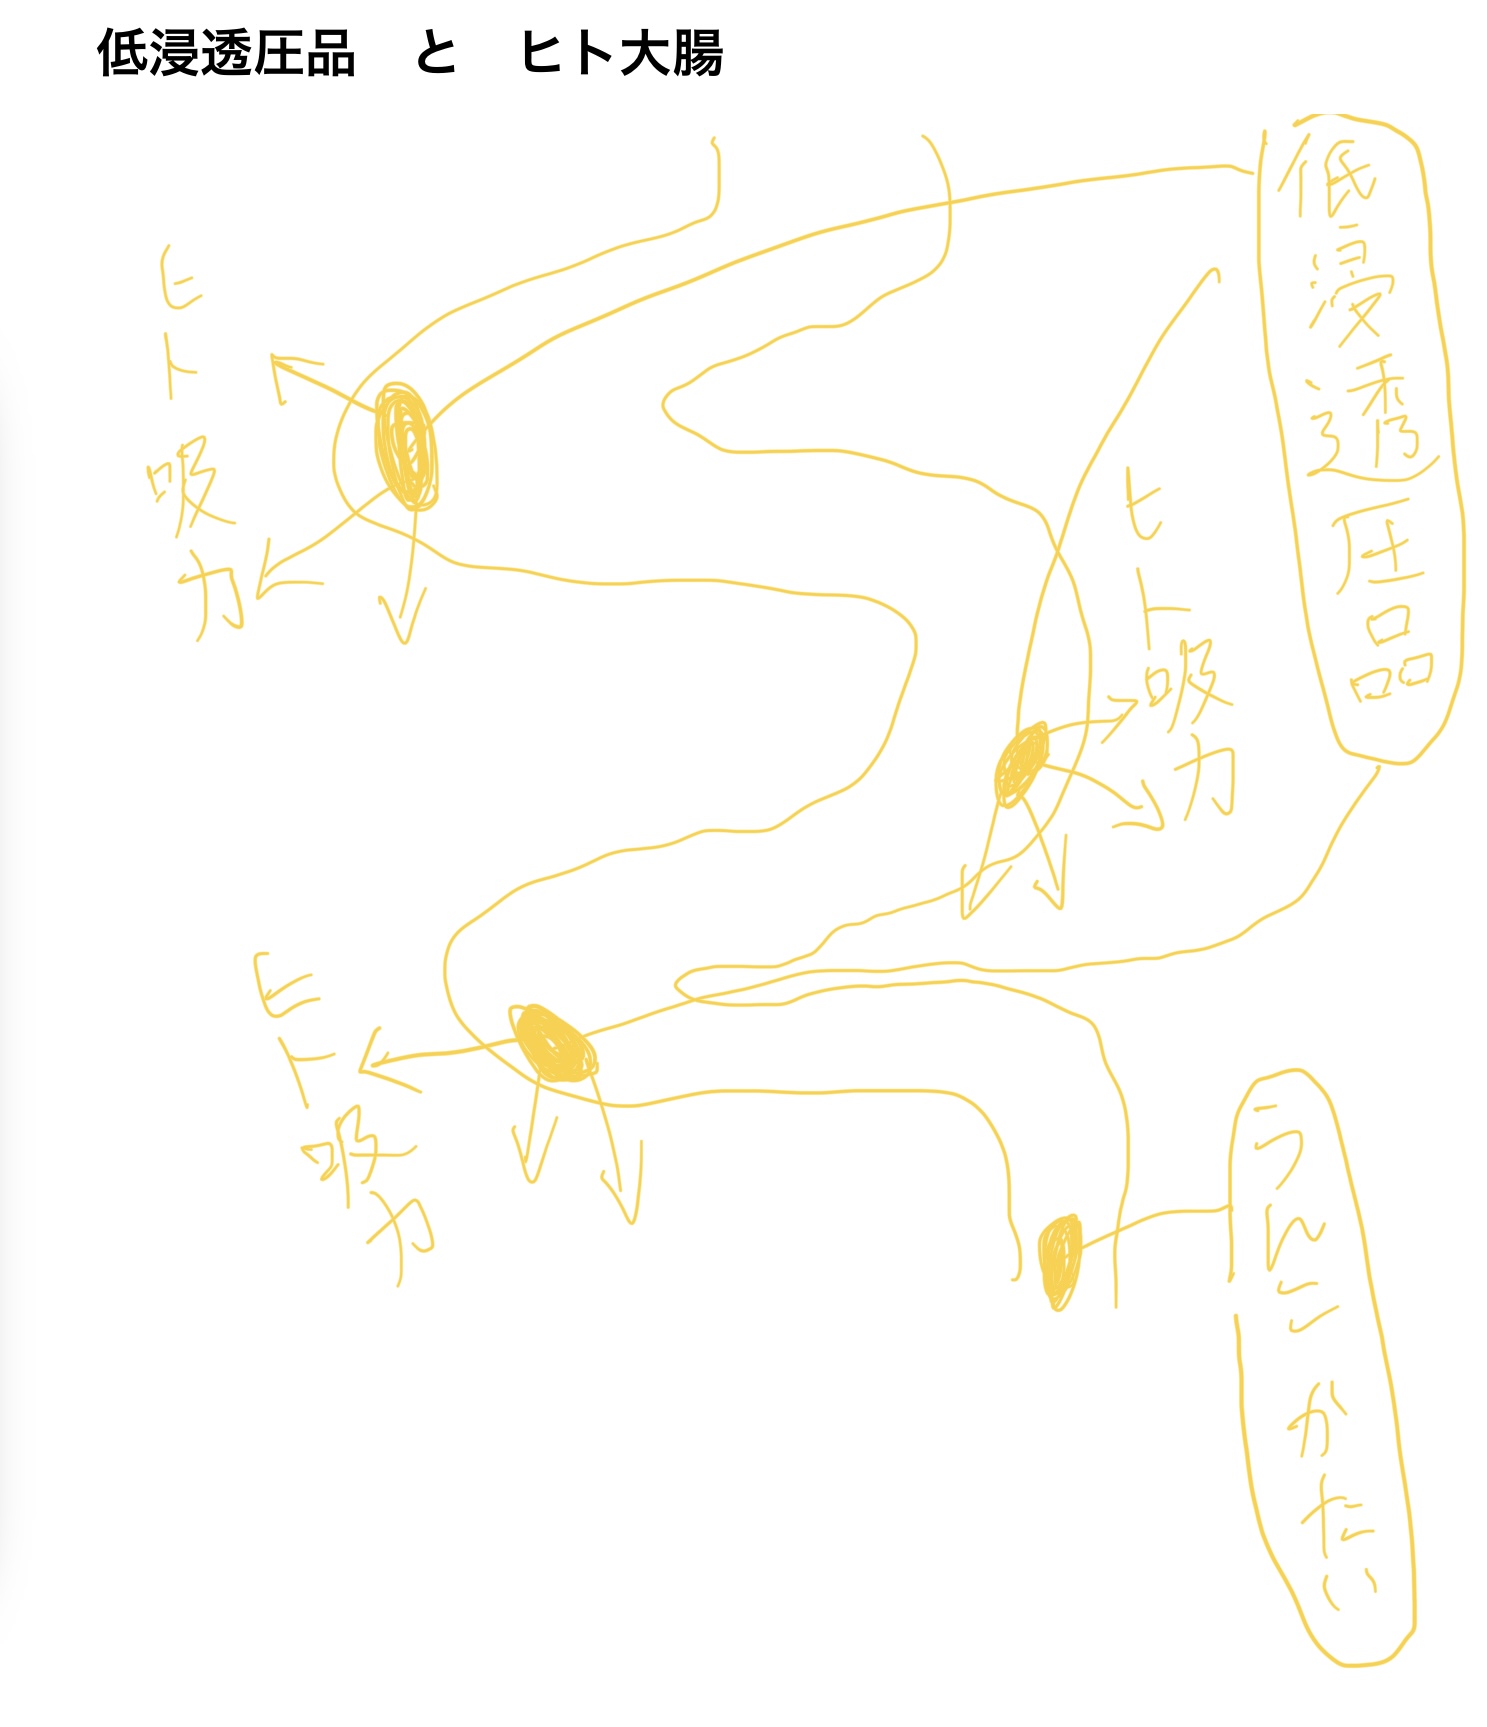 低浸透圧品　と　ヒト大腸
低浸透圧品
ヒト吸力
ヒト吸力
ヒト吸力
うんこかたい